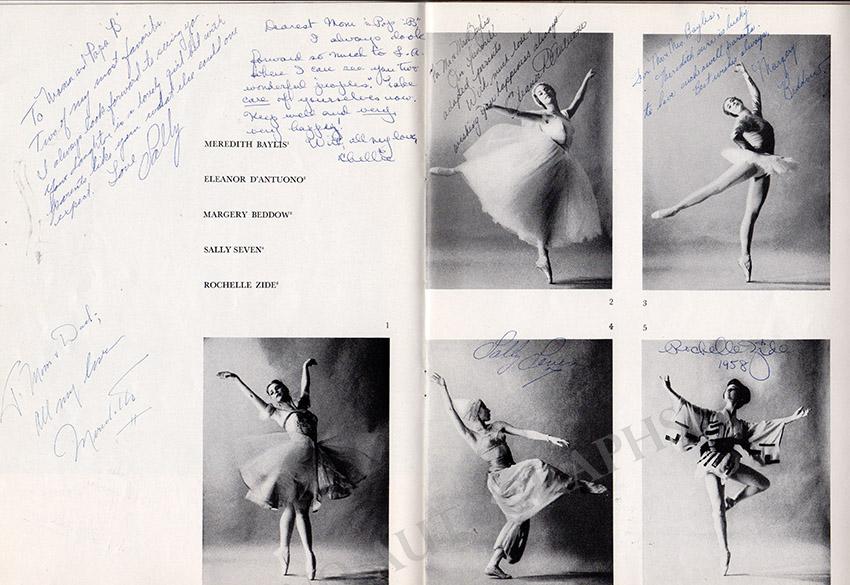 To Mama an' Papa "B"
Two of my most favorite.
I always look forward to seeing you
Your daughter is a lovely girl but with
parents like you what else could one
expect.
Love Sally
Dearest Mom 'n Pop "B"
I always look
forward so much to L.A.
where I can see you two
wonderful peoples. Take
care of yourselves now.
Keep well and very,
very happy.
With all my love,
Shellie
MEREDITH BAYLIS¹
ELEANOR D'ANTUONO²
MARGERY BEDDOW³
SALLY SEVEN⁴
ROCHELLE ZIDE⁵
To Mom & Dad,
All my love
Meredith
1
To Mr. Mrs. Baylis
My
adopted parents
With much love
wishing you happiness always
Eleanor D'Antuono
2
For Mr. Mrs. Baylis,
Meredith sure is lucky
to have such swell parents.
Best wishes always,
Margery
Beddow
3
4
Sally Seven
5
Rochelle Zide
1958
AUTOGRAPHS